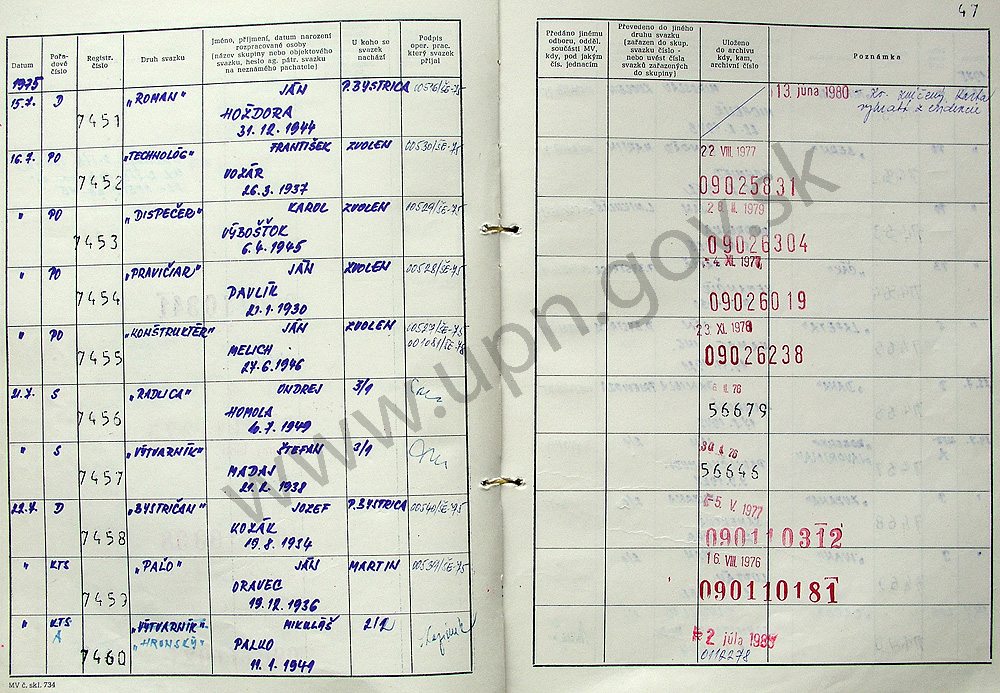 47
Datum
Pořadové číslo
Registr. číslo
Druh svazku
Jméno, příjmení, datum narození
rozpracované osoby
(název skupiny nebo objektového
svazku, heslo ag. pátr. svazku
na neznámého pachatele)
U koho se
svazek
nachází
Podpis
oper. prac.
který svazek
přijal
Předáno jinému
odboru, odděl.
součásti MV,
kdy, pod jakým
čís. jednacím
Převedeno do jiného
druhu svazku
(zařazen do skup.
svazku číslo -
nebo uvést čísla
svazků zařazených
do skupiny)
Uloženo
do archivu
kdy, kam,
archivní číslo
Poznámka
1975
15.7. D 7451 „ROMAN" JÁN P. BYSTRICA 00516/ŠE-75 13. júna 1980
HOŽDORA
31.12.1944
16.7. PO 7452 „TECHNOLÓG" FRANTIŠEK ZVOLEN 00530/ŠE-78 22. VIII. 1977
VOZÁR 09025831
26.3.1937
" PO 7453 „DISPEČER" KAROL ZVOLEN 10529/ŠE-75
VÝBOŠŤOK 09026304
6.4.1945
" PO 7454 „PRAVIČIAR" JÁN ZVOLEN 00528/ŠE-75 -4. XI. 1977
PAVLÍK 09026019
21.1.1930
" PO 7455 „KONŠTRUKTÉR" JÁN ZVOLEN 00527/ŠE-75 23. XI. 1978
001081/ŠE-78
MELICH 09026238
27.6.1946
21.7. S 7456 „RADLICA" ONDREJ 3/1
HOMOLA 56679
6.7.1949
" S 7457 „VÝTVARNÍK" ŠTEFAN 3/1
MADAJ 56646
21.2.1938
22.7. D 7458 „BYSTRIČAN" JOZEF P. BYSTRICA 00540/ŠE-75 -5. V. 1977
KOZÁK 090110312
19.8.1934
" KTS 7459 „PAĽO" JÁN MARTIN 00539/ŠE-75 16. VIII. 1976
ORAVEC 090110181
19.12.1936
" KTS 7460 „VÝTVARNÍK" MIKULÁŠ 2/2
A „HRONSKÝ" PALKO 2. júla 1985
11.1.1941 0112278
MV č. skl. 734
www.upn.gov.sk